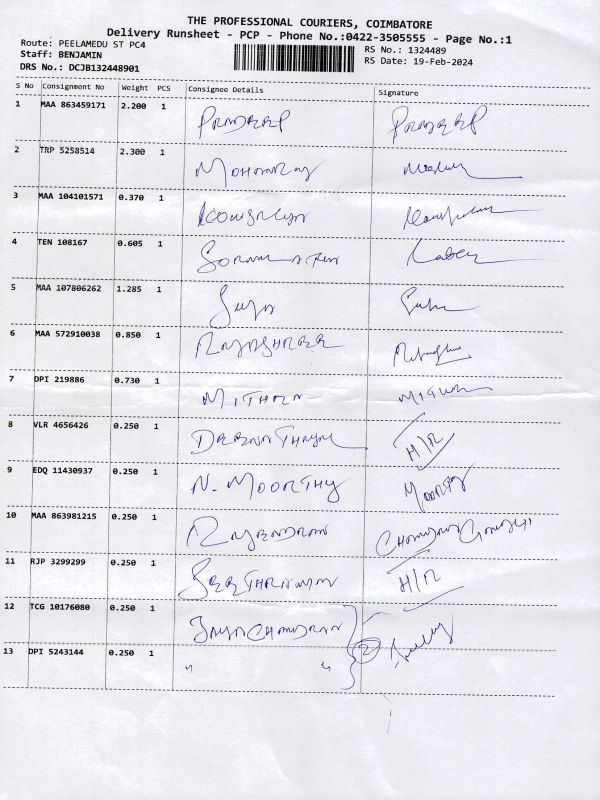 THE PROFESSIONAL COURIERS, COIMBATORE
Delivery Runsheet - PCP - Phone No.:0422-3505555 - Page No.:1
Route: PEELAMEDU ST PC4 RS No.: 1324489
Staff: BENJAMIN RS Date: 19-Feb-2024
DRS No.: DCJB132448901
S No Consignment No Weight PCS Consignee Details Signature
1 MAA 863459171 2.200 1 PRADEEP PRADEEP
2 TRP 5258514 2.300 1
3 MAA 104101571 0.370 1
4 TEN 108167 0.605 1
5 MAA 107806262 1.285 1
6 MAA 572910038 0.850 1 RAJASHREE
7 DPI 219886 0.730 1 MITHRA
8 VLR 4656426 0.250 1 H/R
9 EDQ 11430937 0.250 1 N. MOORTHY MOORTHY
10 MAA 863981215 0.250 1 RAJENDRAN
11 RJP 3299299 0.250 1 H/R
12 TCG 10176080 0.250 1 JAYACHANDRAN
13 DPI 5243144 0.250 1 " " 2